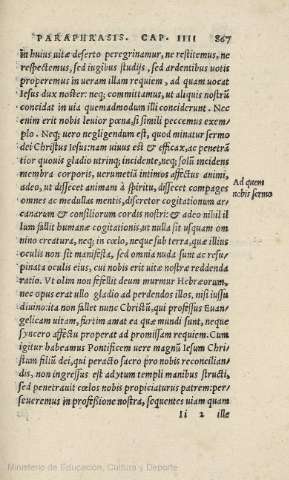 PARAPHRASIS. CAP. IIII 867
in huius uitæ deserto peregrinamur, ne restitemus, ne
respectemus, sed iugibus studijs, sed ardentibus uotis
properemus in ueram illam requiem, ad quam uocat
Iesus dux noster: neq; committamus, ut aliquis nostrũ
concidat in uia quemadmodum illi conciderunt. Nec
enim erit nobis leuior pœna, si simili peccemus exem-
plo. Neq; uero negligendum est, quod minatur sermo
dei Christus Iesus: nam uiuus est & efficax, ac penetrã
tior quouis gladio utrinq; incidente, neq; solũ incidens
membra corporis, uerumetiã intimos affectus animi,
adeo, ut dissecet animã à spiritu, dissecet compages
omnes ac medullas mentis, discretor cogitationum ar-
canarum & consiliorum cordis nostri: & adeo nihil il
lum fallit humanæ cogitationis, ut nulla sit usquam om
nino creatura, neq; in cœlo, neque sub terra, quæ illius
oculis non sit manifesta, sed omnia nuda sunt ac resu-
pinata oculis eius, cui nobis erit uitæ nostræ reddenda
ratio. Vt olim non fefellit deum murmur Hebræorum,
nec opus erat ullo gladio ad perdendos illos, nisi iussu
diuino: ita non fallet nunc Christũ, qui professus Euan-
gelicam uitam, furtim amat ea quæ mundi sunt, neque
syncero affectu properat ad promissam requiem. Cum
igitur habeamus Pontificem uere magnũ Iesum Chri-
stum filiũ dei, qui peracto sacro pro nobis reconcilian-
dis, non ingressus est adytum templi manibus structi,
sed penetrauit cœlos nobis propiciaturus patrem: per-
seueremus in professione nostra, sequentes uiam quam
Ii 2 ille
Ad quem
nobis sermo
Ministerio de Educación, Cultura y Deporte